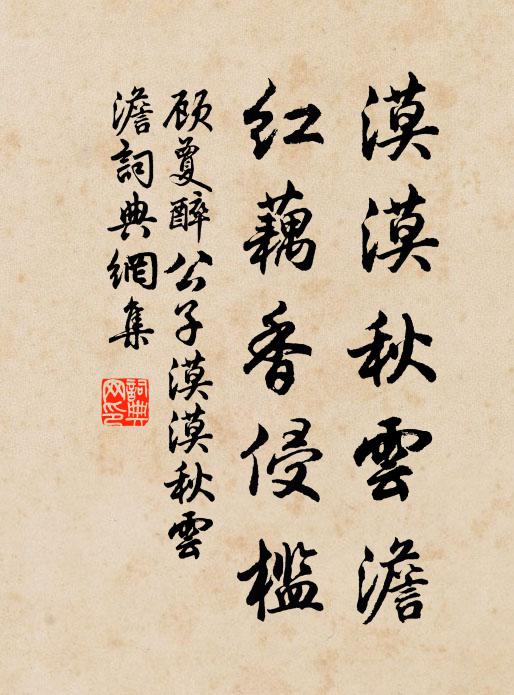 漠漠秋雲澹
红藕香侵槛
顾夐醉公子漠漠秋雲
澹詞典網集
詞典網印